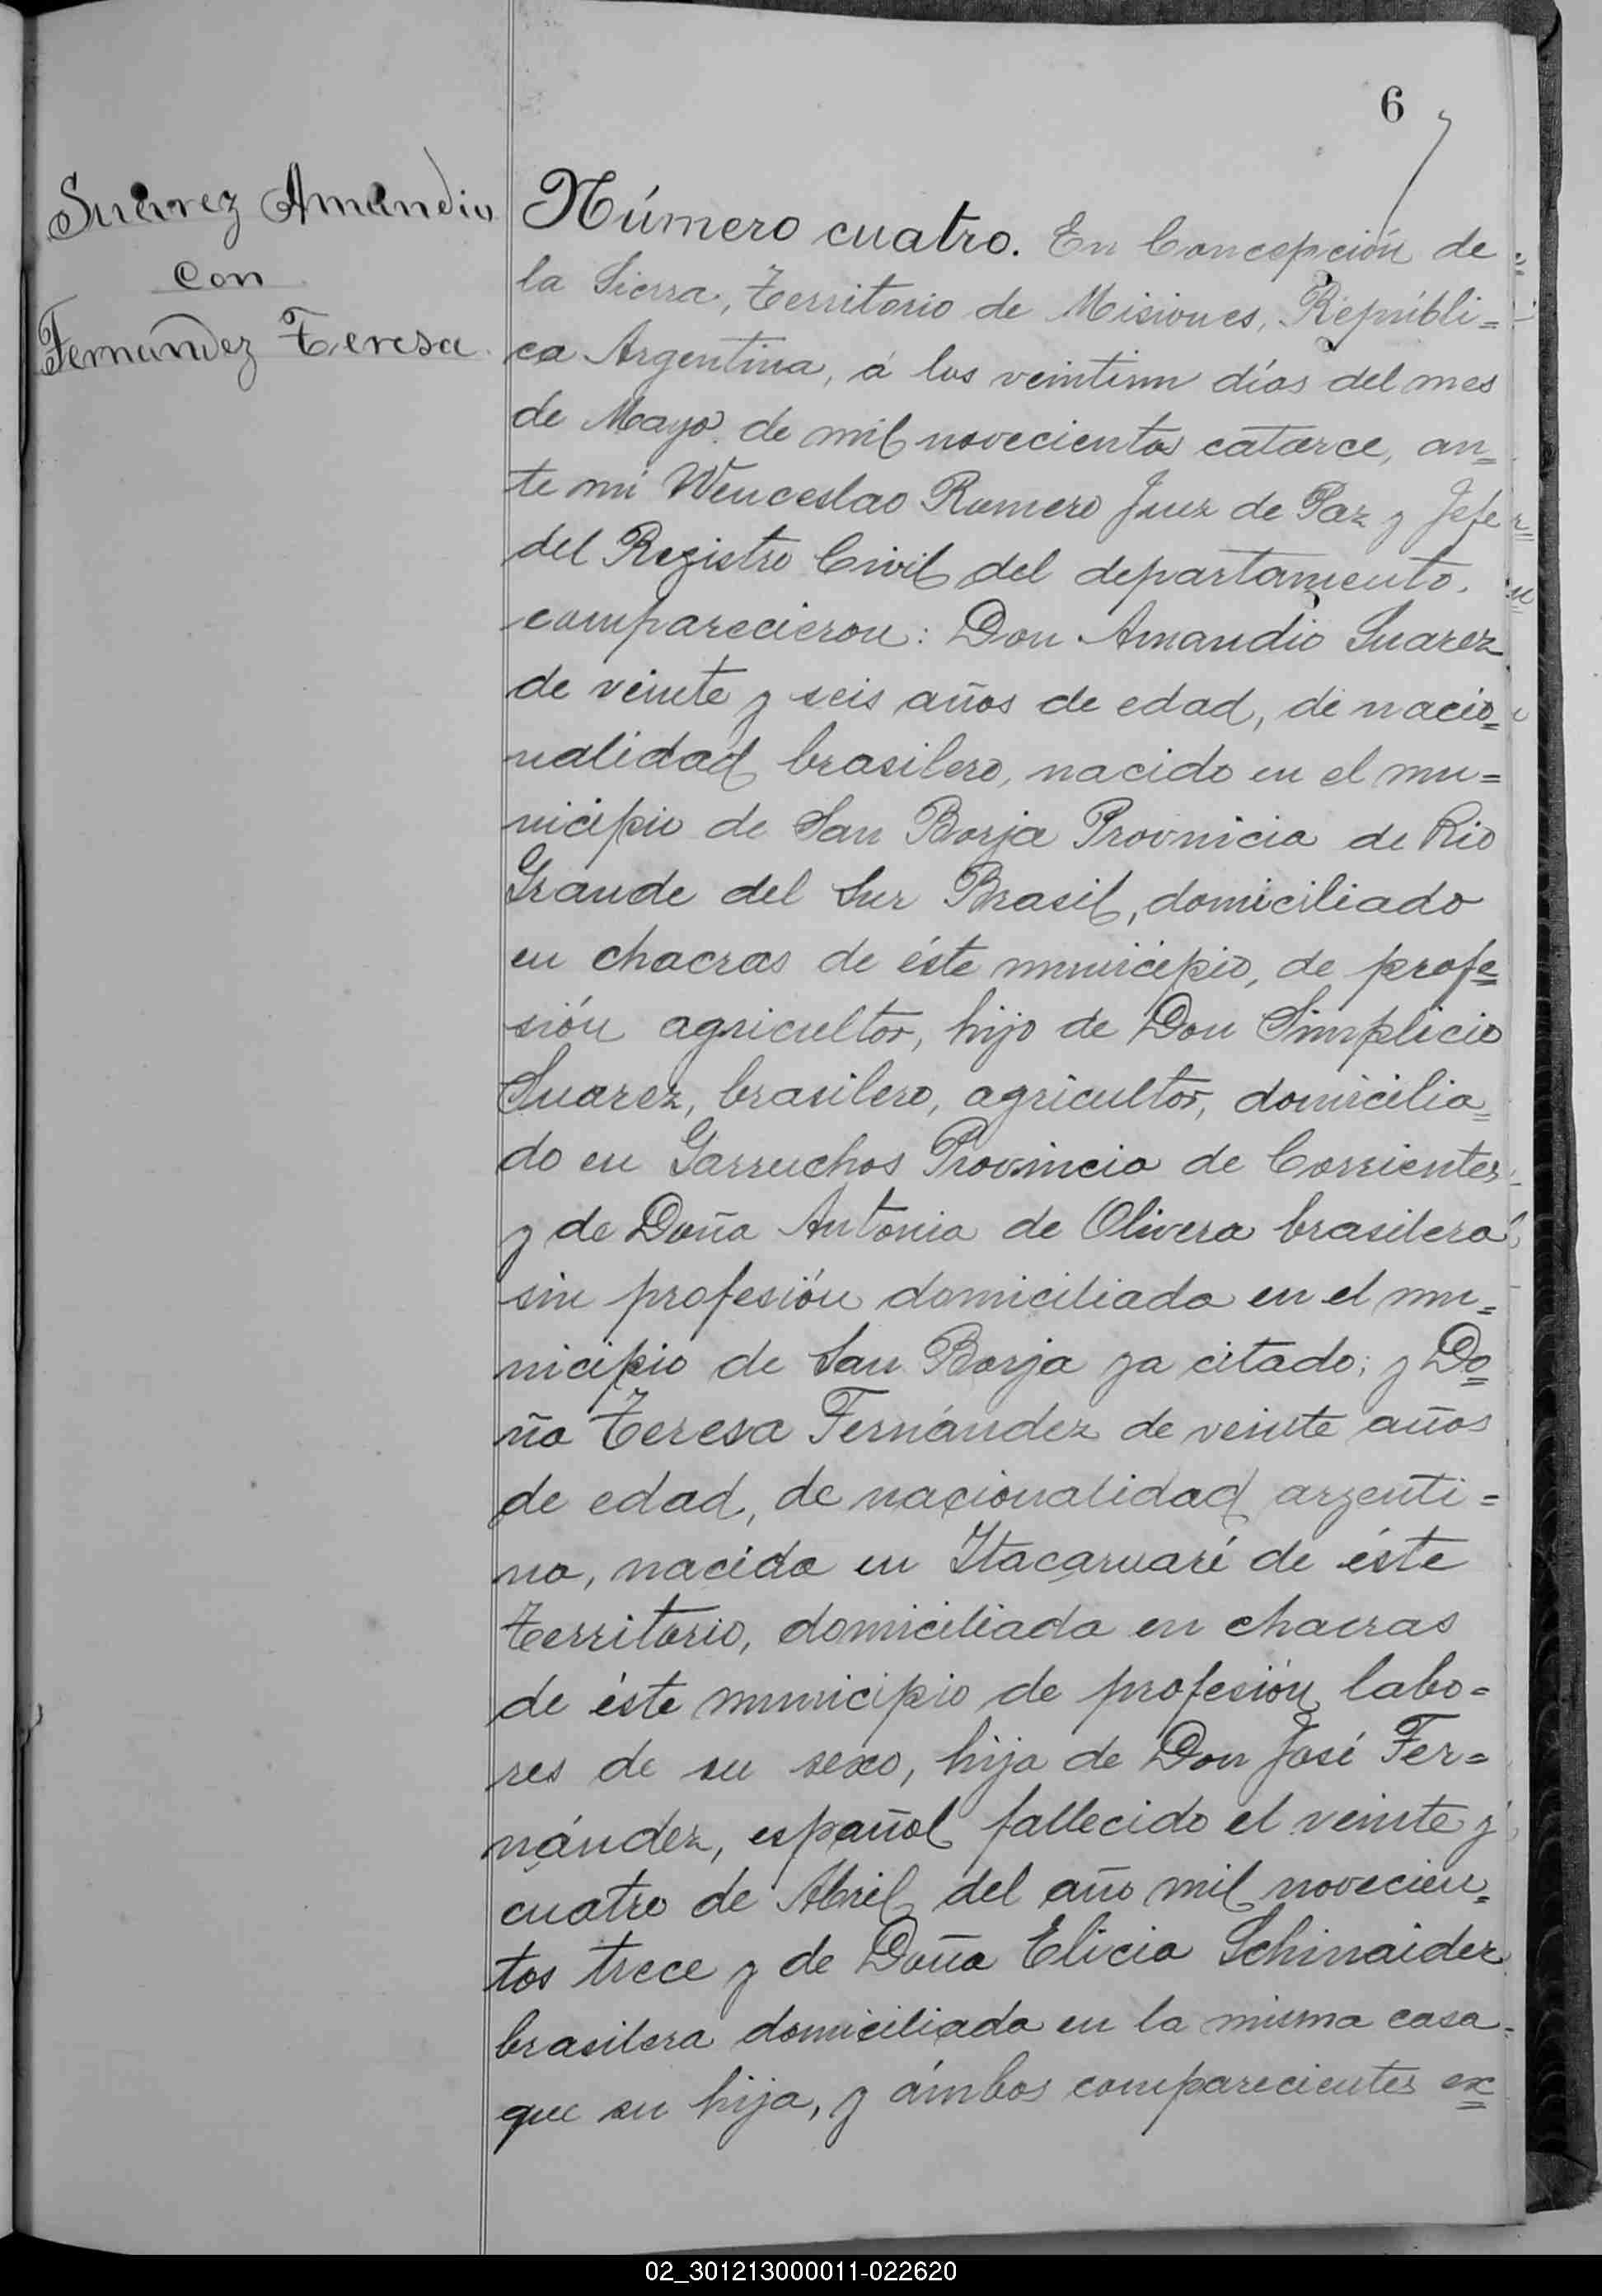 6
Suarez Amandio
con
Fernandez Teresa
Número cuatro. En Concepción de
la Sierra, Territorio de Misiones, Repúbli=
ca Argentina, á los veintiun días del mes
de Mayo de mil novecientos catorce, an=
te mí Wenceslao Romero Juez de Paz y Jefe
del Registro Civil del departamento,
comparecieron: Don Amandio Suarez
de veinte y seis años de edad, de nacio=
nalidad brasilero, nacido en el mu=
nicipio de San Borja Provnicia de Rio
Grande del Sur Brasil, domiciliado
en chacras de éste municipio, de profe=
sión agricultor, hijo de Don Simplicio
Suarez, brasilero, agricultor, domicilia=
do en Garruchos Provincia de Corrientes
y de Doña Antonia de Olivera brasilera
sin profesión domiciliada en el mu=
nicipio de San Borja ya citado; y Do=
ña Teresa Fernández de veinte años
de edad, de nacionalidad argenti=
na, nacida en Itacaruaré de éste
Territorio, domiciliada en chacras
de éste municipio de profesión labo=
res de su sexo, hija de Don José Fer=
nández, español fallecido el veinte y
cuatro de Abril del año mil novecien=
tos trece y de Doña Elicia Schinaider
brasilera domiciliada en la misma casa
que su hija, y ámbos comparecientes ex=
02_301213000011-022620